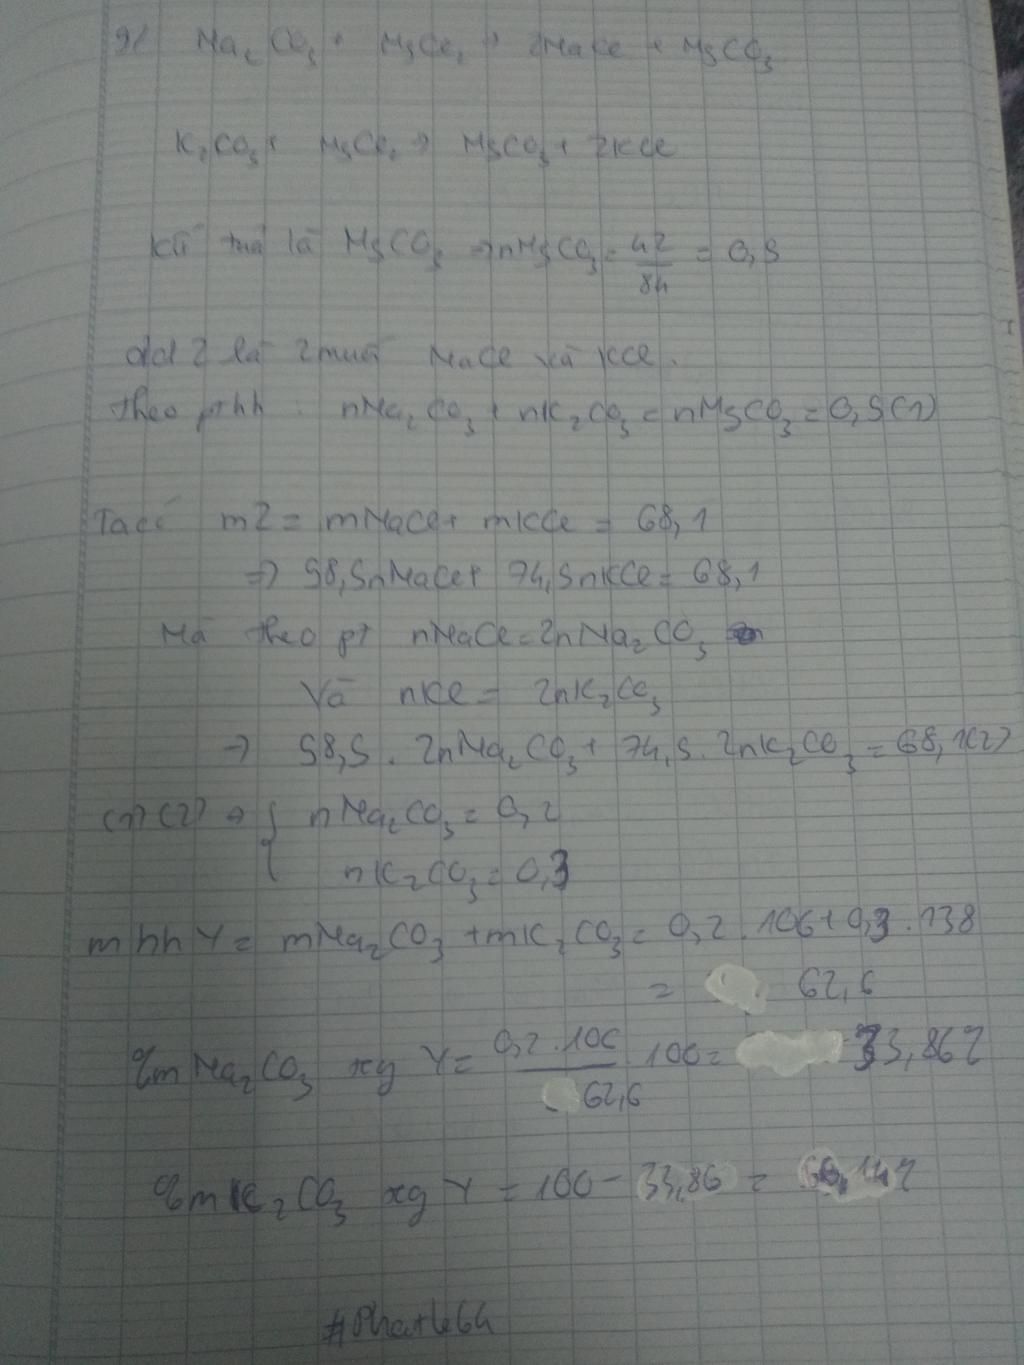 9/ Na₂CO₃ + MgCl₂ → 2NaCl + MgCO₃
K₂CO₃ + MgCl₂ → MgCO₃ + 2KCl
Kết tủa là MgCO₃ → nMgCO₃ = 42/84 = 0,5
dd Z là 2 muối NaCl và KCl.
Theo pthh : nNa₂CO₃ + nK₂CO₃ = nMgCO₃ = 0,5 (1)
Ta có mZ = mNaCl + mKCl = 68,1
=> 58,5nNaCl + 74,5nKCl = 68,1
Mà theo pt nNaCl = 2nNa₂CO₃
Và nKCl = 2nK₂CO₃
→ 58,5 . 2nNa₂CO₃ + 74,5 . 2nK₂CO₃ = 68,1 (2)
(1) (2) → { nNa₂CO₃ = 0,2
nK₂CO₃ = 0,3
m hh Y = mNa₂CO₃ + mK₂CO₃ = 0,2 . 106 + 0,3 . 138
= 62,6
%mNa₂CO₃ trg Y = 0,2 . 106 / 62,6 . 100 = 33,86%
%mK₂CO₃ trg Y = 100 - 33,86 = 66,14%